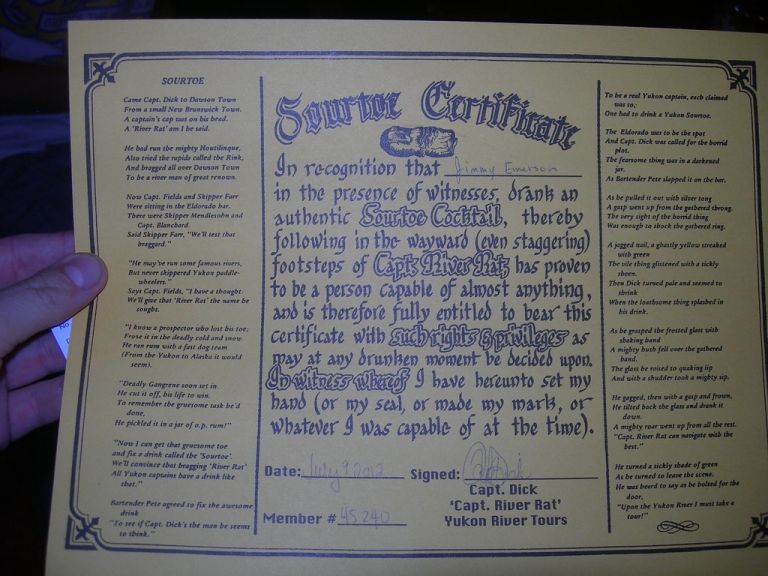 SOURTOE
Came Capt. Dick to Dawson Town
From a small New Brunswick Town.
A captain's cap was on his head.
A 'River Rat' am I he said.
He had run the mighty Houtilinque,
Also tried the rapids called the Rink,
And bragged all over Dawson Town
To be a river man of great renown.
Now Capt. Fields and Skipper Farr
Were sitting in the Eldorado bar.
There were Skipper Mendlesohn and
Capt. Blanchard.
Said Skipper Farr, "We'll test that
braggard."
"He may've run some famous rivers,
But never skippered Yukon paddle-
wheelers."
Says Capt. Fields, "I have a thought-
We'll give that 'River Rat' the name he
sought.
"I know a prospector who lost his toe;
Froze it in the deadly cold and snow.
He ran rum with a fast dog team
(From the Yukon to Alaska it would
seem).
"Deadly Gangrene soon set in
He cut it off, his life to win.
To remember the gruesome task he'd
done,
He pickled it in a jar of o.p. rum!"
"Now I can get that gruesome toe
and fix a drink called the 'Sourtoe'.
We'll convince that bragging 'River Rat'
All Yukon captains have a drink like
that."
Bartender Pete agreed to fix the awesome
drink
"To see if Capt. Dick's the man he seems
to think."
Sourtoe Certificate
In recognition that Jimmy Emerson
in the presence of witnesses, drank an
authentic Sourtoe Cocktail, thereby
following in the wayward (even staggering)
footsteps of Capt. River Rat, has proven
to be a person capable of almost anything,
and is therefore fully entitled to bear this
certificate with such rights & privileges as
may at any drunken moment be decided upon.
In witness whereof I have hereunto set my
hand (or my seal, or made my mark, or
whatever I was capable of at the time).
Date: July 9 2012 Signed:
Capt. Dick
'Capt. River Rat'
Member # 45,240 Yukon River Tours
To be a real Yukon captain, each claimed
was to;
One had to drink a Yukon Sourtoe.
The Eldorado was to be the spot
And Capt. Dick was called for the horrid
plot.
The fearsome thing was in a darkened
jar.
As Bartender Pete slapped it on the bar.
As he pulled it out with silver tong
A gasp went up from the gathered throng.
The very sight of the horrid thing
Was enough to shock the gathered ring.
A jagged nail, a ghastly yellow streaked
with green
The vile thing glistened with a sickly
sheen.
Then Dick turned pale and seemed to
shrink
When the loathsome thing splashed in
his drink.
As he grasped the frosted glass with
shaking hand
A mighty hush fell over the gathered
band.
The glass he raised to quaking lip
And with a shudder took a mighty sip.
He gagged, then with a gasp and frown,
He tilted back the glass and drank it
down.
A mighty roar went up from all the rest.
"Capt. River Rat can navigate with the
best."
He turned a sickly shade of green
As he turned to leave the scene.
He was heard to say as he bolted for the
door,
"Upon the Yukon River I must take a
tour!"